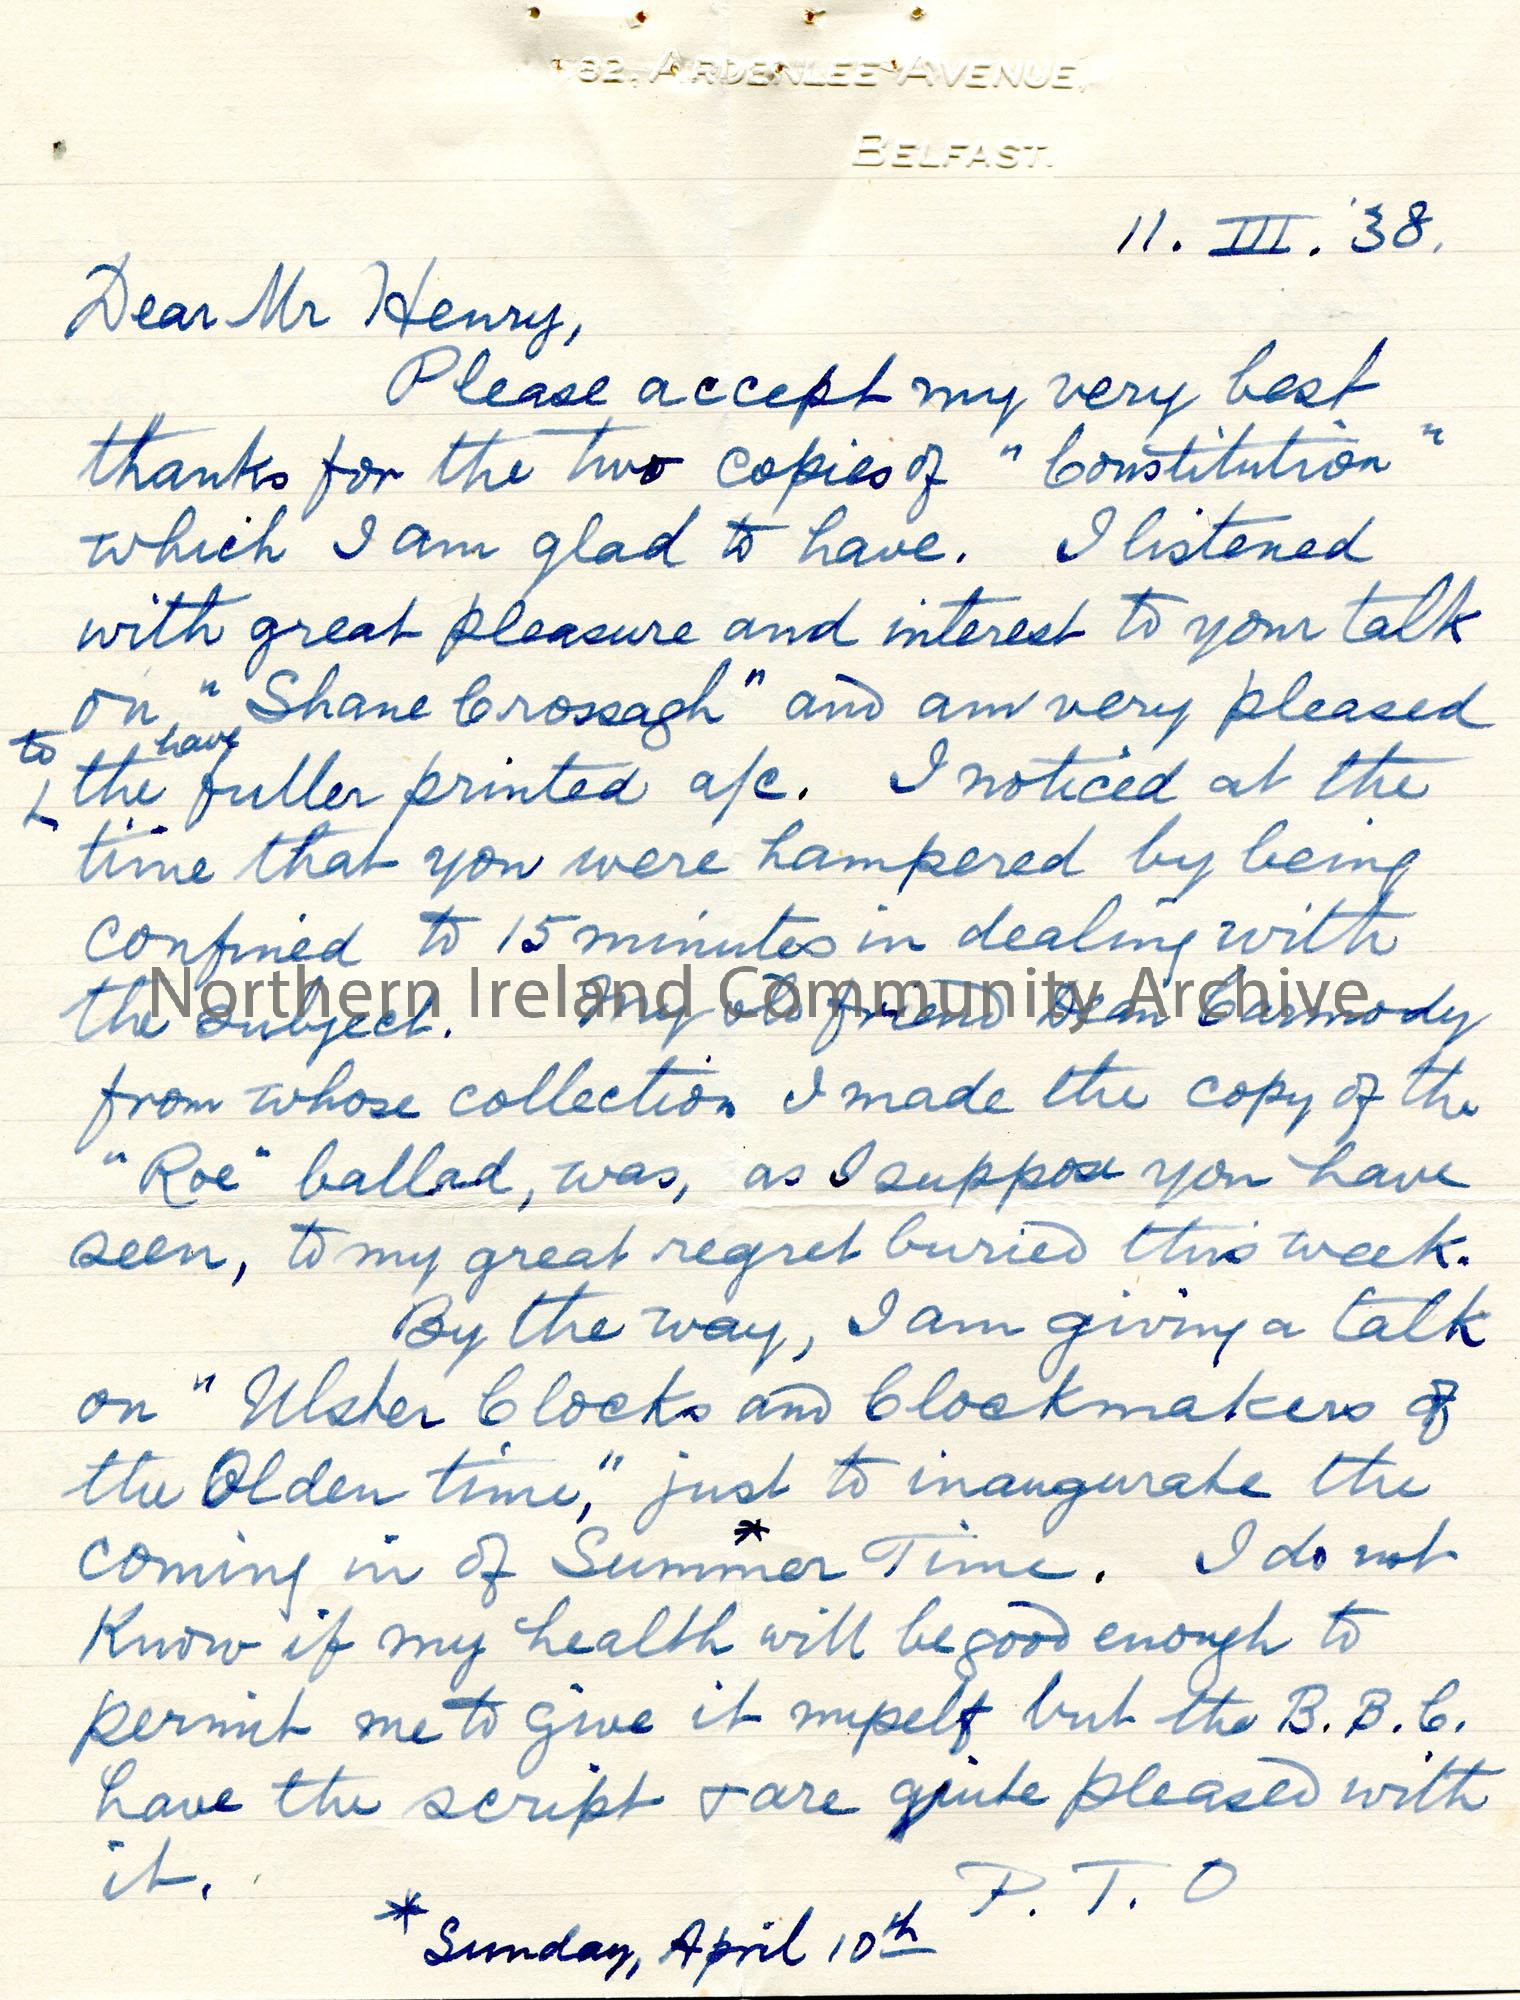 82, ARDENLEE AVENUE,
BELFAST.
11. III. '38.
Dear Mr Henry,
Please accept my very best
thanks for the two copies of "Constitution"
which I am glad to have. I listened
with great pleasure and interest to your talk
on "Shane Crossagh" and am very pleased
to have
the fuller printed a/c. I noticed at the
time that you were hampered by being
confined to 15 minutes in dealing with
the subject. My old friend Dean Carmody
Northern Ireland Community Archive
from whose collection I made the copy of the
"Roe" ballad, was, as I suppose you have
seen, to my great regret buried this week.
By the way, I am giving a talk
on "Ulster Clocks and Clockmakers of
the Olden time," just to inaugurate the
coming in of Summer * Time. I do not
know if my health will be good enough to
permit me to give it myself but the B.B.C.
have the script & are quite pleased with
it.
P.T.O
* Sunday, April 10th